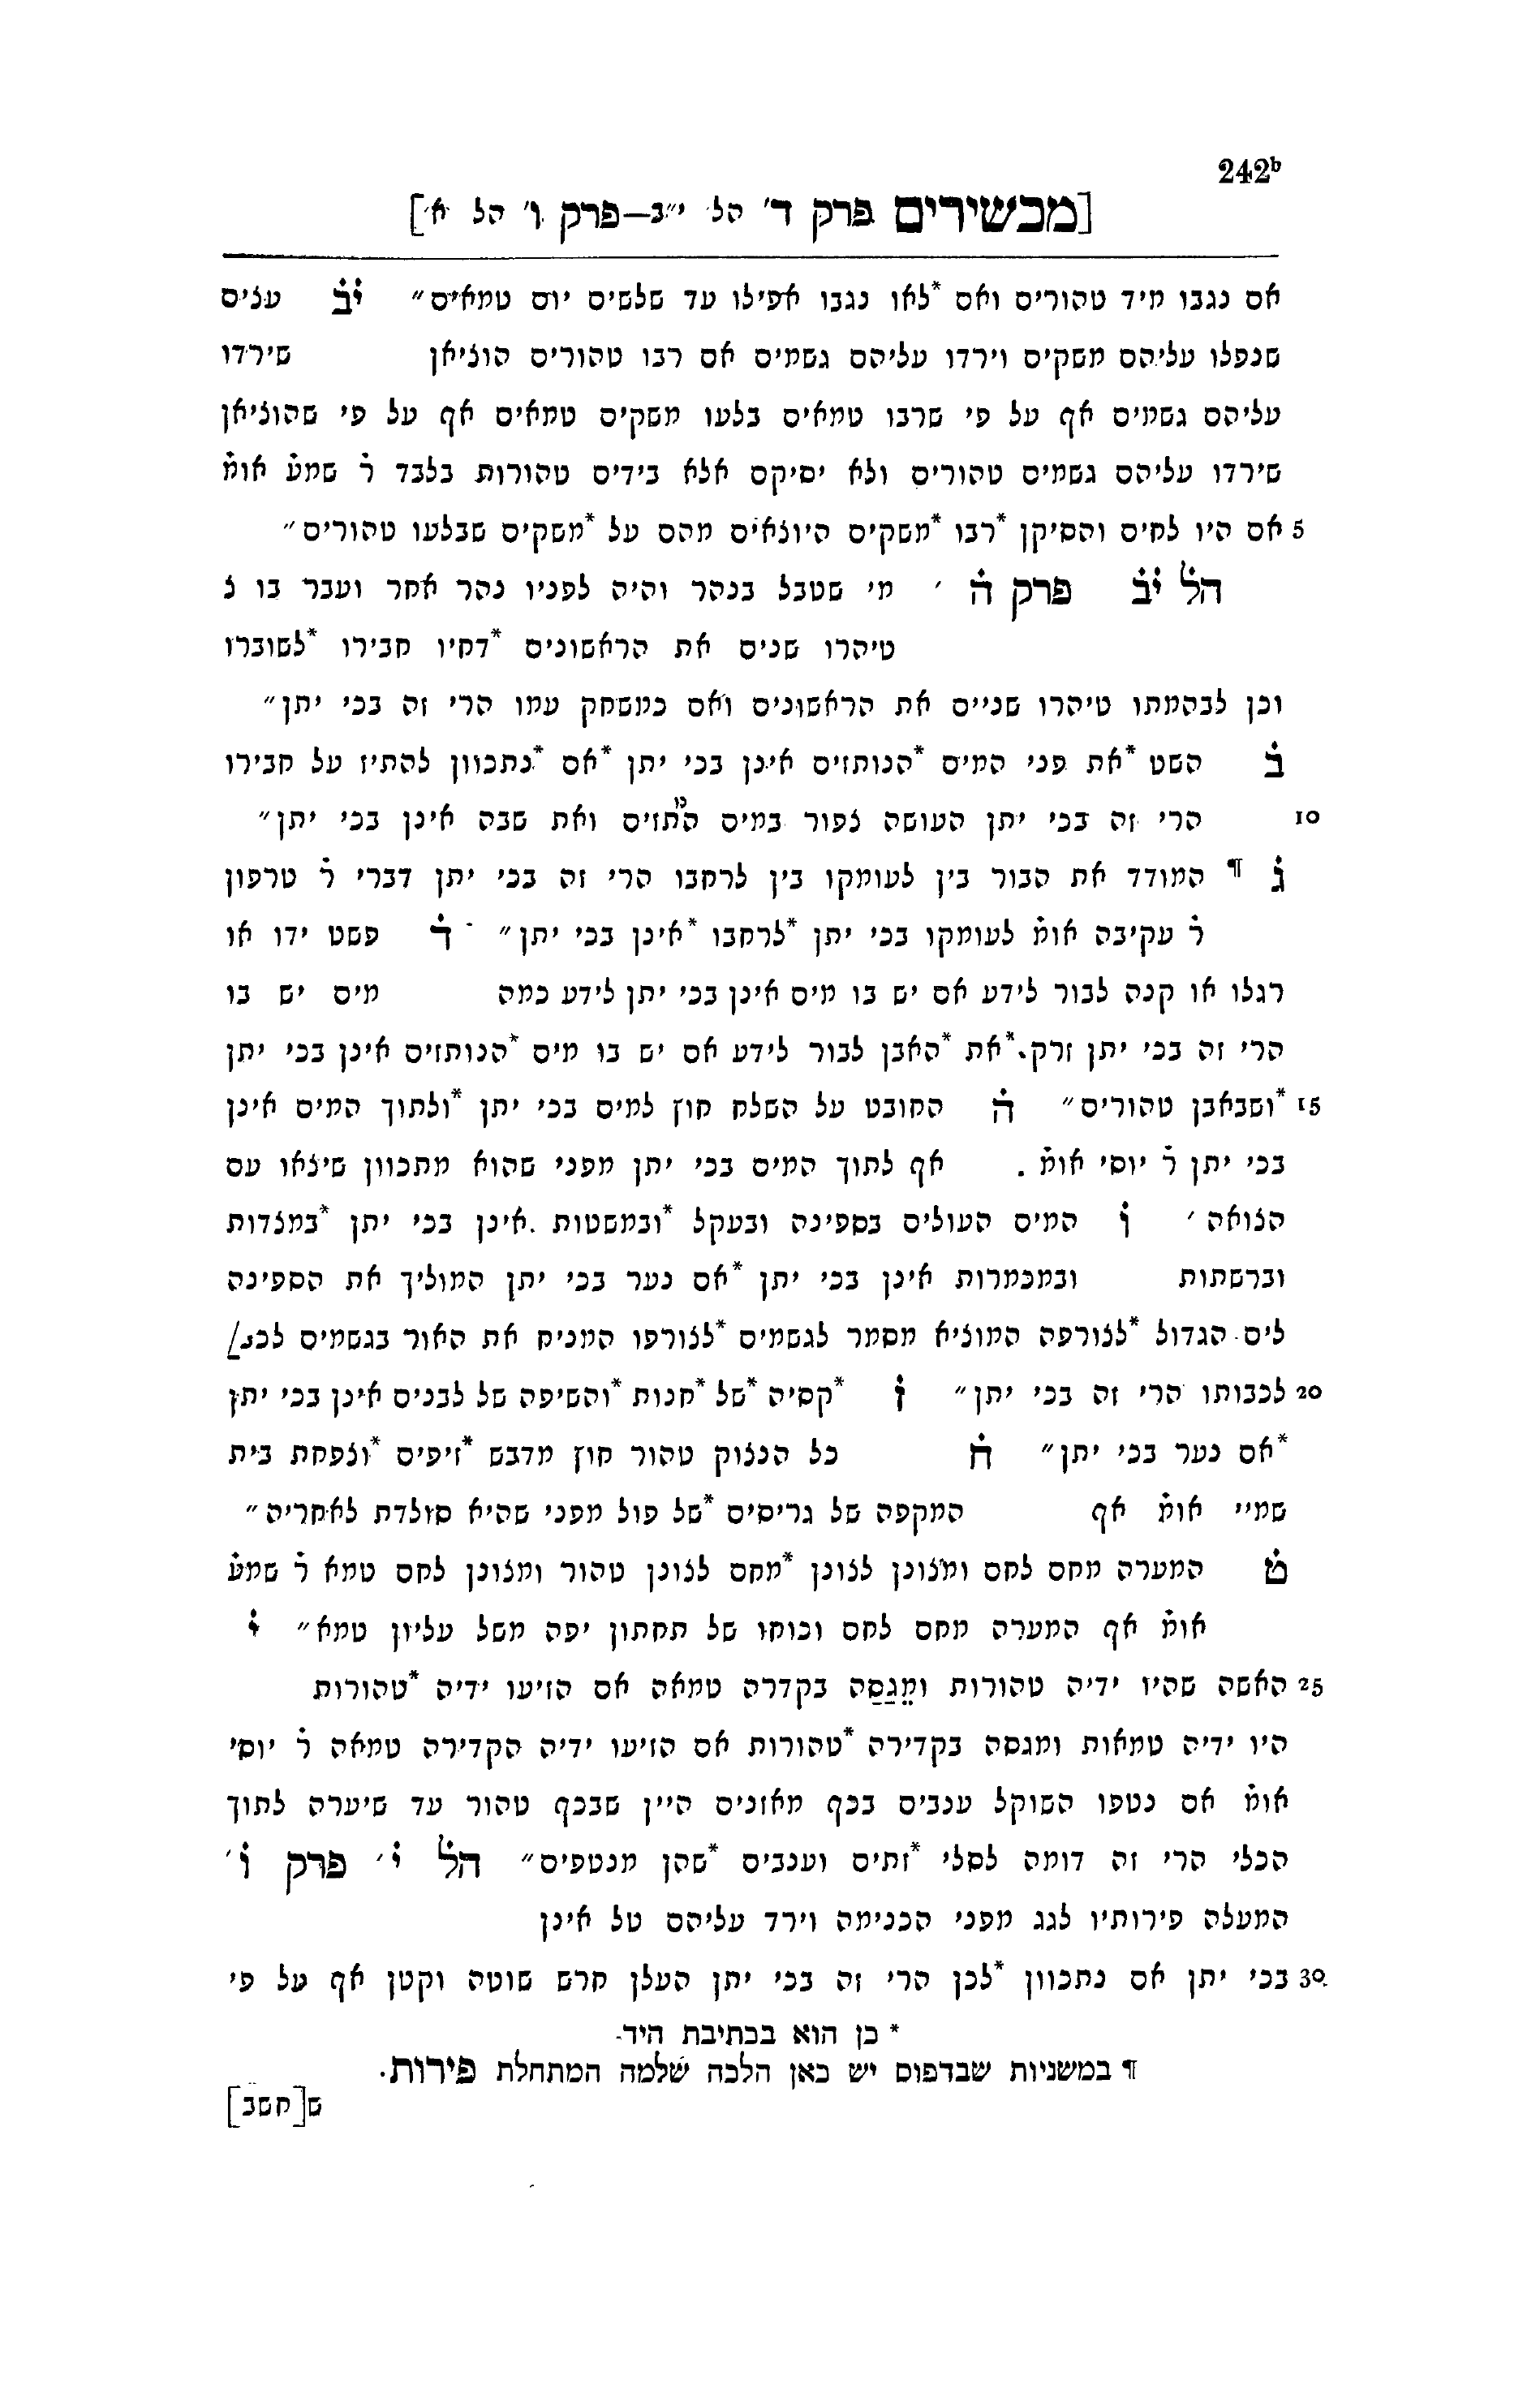 242b
[מכשירים פרק ד' הל' י"ב—פרק ו' הל' א']
אם נגבו מיד טהורים ואם *לאו נגבו אפילו עד שלשים יום טמאים״ יׄבׄ עצים
שנפלו עליהם משקים וירדו עליהם גשמים אם רבו טהורים הוציאן שירדו
עליהם גשמים אף על פי שרבו טמאים בלעו משקים טמאים אף על פי שהוציאן
שירדו עליהם גשמים טהורים ולא יסיקם אלא בידים טהורות בלבד רׄ שמעׄ אומׄ
5 אם היו לחים והסיקן *רבו *משקים היוצאים מהם על *משקים שבלעו טהורים״
הלׄ יׄבׄ פרק הׄ ׳ מי שטבל בנהר והיה לפניו נהר אחר ועבר בו צ
טיהרו שנים את הראשונים *דחיו חבירו *לשוברו
וכן לבהמתו טיהרו שניים את הראשונים ואם כמשחק עמו הרי זה בכי יתן״
בׄ השט *את פני המים *הנותזים אינן בכי יתן *אם *נתכוון להתיז על חבירו
10 הרי זה בכי יתן העושה צפור במים התזים ואת שבה אינן בכי יתן״
גׄ ¶ המודד את הבור בין לעומקו בין לרחבו הרי זה בכי יתן דברי רׄ טרפון
רׄ עקיבה אומׄ לעומקו בכי יתן *לרחבו *אינן בכי יתן״ דׄ פשט ידו או
רגלו או קנה לבור לידע אם יש בו מים אינן בכי יתן לידע כמה מים יש בו
הרי זה בכי יתן זרק *את *האבן לבור לידע אם יש בו מים *הנותזים אינן בכי יתן
15 *ושבאבן טהורים״ הׄ החובט על השלח חוץ למים בכי יתן *ולתוך המים אינן
בכי יתן רׄ יוסי אומׄ . אף לתוך המים בכי יתן מפני שהוא מתכוון שיצאו עם
הצואה ׳ וׄ המים העולים בספינה ובעקל *ובמשטות אינן בכי יתן *במצדות
וברשתות ובמכמרות אינן בכי יתן *אם נער בכי יתן המוליך את הספינה
לים הגדול *לצורפה המוציא מסמר לגשמים *לצורפו המניח את האור בגשמים
20 לכבותו הרי זה בכי יתן״ זׄ *קסיה *של *חנות *והשיפה של לבנים אינן בכי יתן
*אם נער בכי יתן״ חׄ כל הנצוק טהור חוץ מדבש *זיפים *וצפחת בית
שמיי אומׄ אף המקפה של גריסים *של פול מפני שהיא סולדת לאחריה״
טׄ המערה מחם לחם ומצונן לצונן *מחם לצונן טהור ומצונן לחם טמא רׄ שמעׄ
אומׄ אף המערה מחם לחם וכוחו של תחתון יפה משל עליון טמא״ יׄ
25 האשה שהיו ידיה טהורות ומגסה בקדרה טמאה אם הזיעו ידיה *טהורות
היו ידיה טמאות ומגסה בקדירה *טהורות אם הזיעו ידיה הקדירה טמאה רׄ יוסי
אומׄ אם נטפו השוקל ענבים בכף מאזנים היין שבכף טהור עד שיערה לתוך
הכלי הרי זה דומה לסלי *זתים וענבים *שהן מנטפים״ הלׄ יׄ ׳ פרק וׄ ׳
המעלה פירותיו לגג מפני הכנימה וירד עליהם טל אינן
30 בכי יתן אם נתכוון *לכן הרי זה בכי יתן העלן חרש שוטה וקטן אף על פי
* כן הוא בכתיבת היד.
¶ במשניות שבדפוס יש כאן הלכה שלמה המתחלת פירות.
ש[חשב]